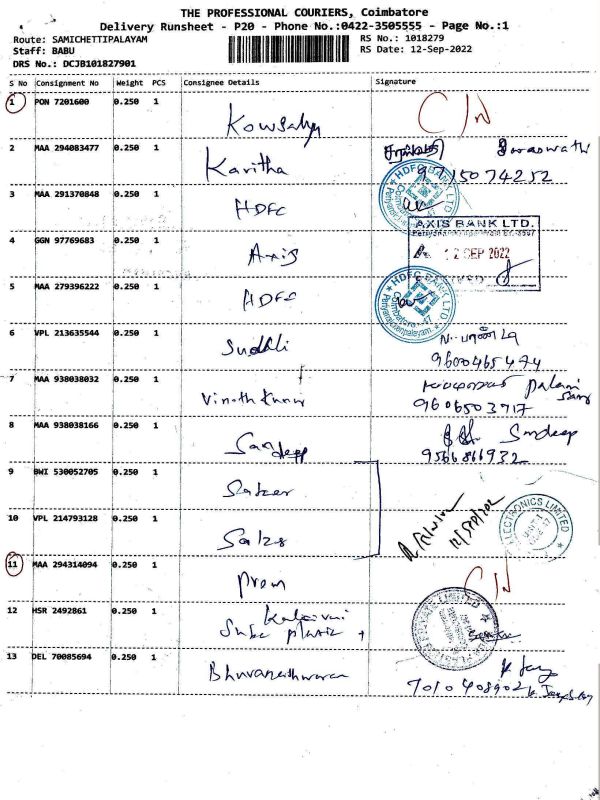 THE PROFESSIONAL COURIERS, Coimbatore
Delivery Runsheet - P20 - Phone No.:0422-3505555 - Page No.:1
Route: SAMICHETTIPALAYAM RS No.: 1018279
Staff: BABU RS Date: 12-Sep-2022
DRS No.: DCJB101827901
S No Consignment No Weight PCS Consignee Details Signature
1 PON 7201600 0.250 1 Kowsalya C/N
2 MAA 294083477 0.250 1 Kavitha Saraswathi
9715074252
3 MAA 291370848 0.250 1 HDFC HDFC BANK LTD Coimbatore
AXIS BANK LTD.
4 GGN 97769683 0.250 1 Axis 12 SEP 2022
5 MAA 279396222 0.250 1 HDFC HDFC BANK LTD Coimbatore-47
6 VPL 213635544 0.250 1
9600465474
7 MAA 938038032 0.250 1 Vinoth Kumar Palani
9606503717
8 MAA 938038166 0.250 1 Sandeep Sandeep
9566866932
9 BWI 530052705 0.250 1
10 VPL 214793128 0.250 1 ELECTRONICS LIMITED
11 MAA 294314094 0.250 1 Prem C/N
12 HSR 2492861 0.250 1 Kalaivani LIMITED
13 DEL 70085694 0.250 1 Bhuvaneshwaran
7010408902